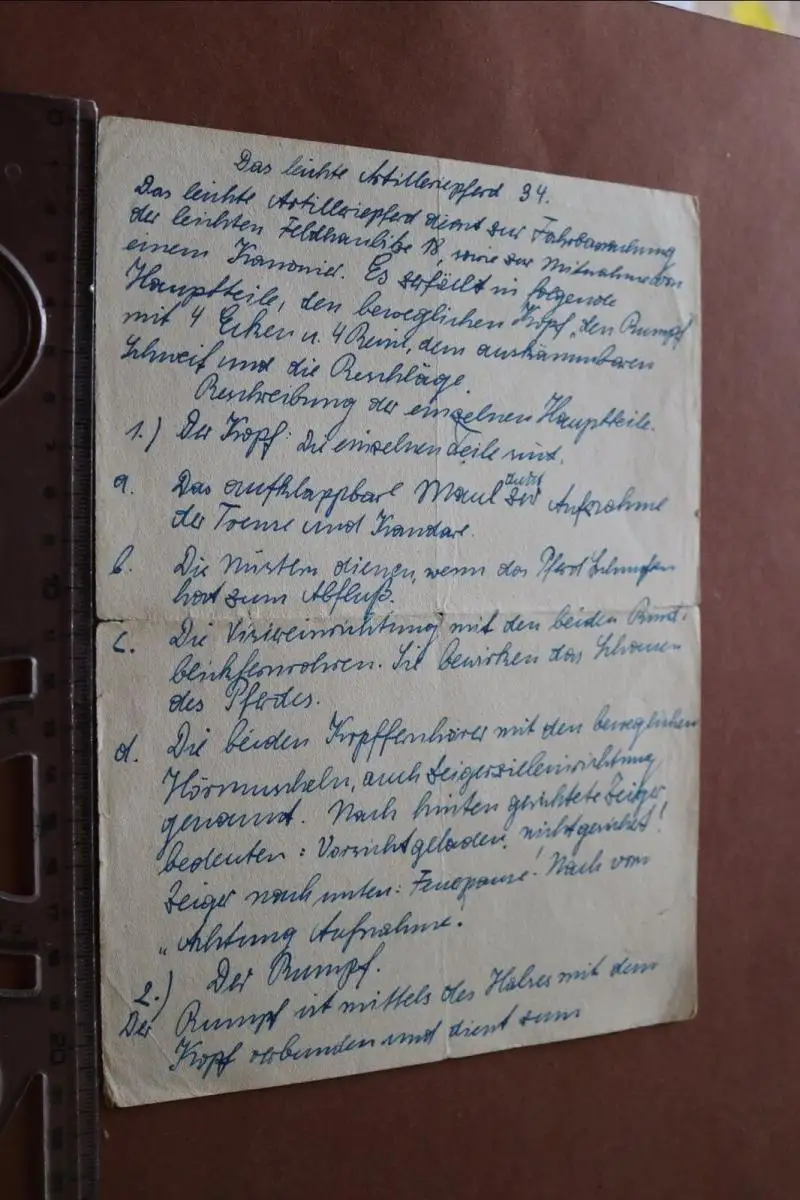 Das leichte Artilleriepferd 34.
Das leichte Artilleriepferd dient zur Fahrbarmachung
der leichten Feldhaubitze 18, sowie zur Mitnahme von
einem Kanonier. Es zerfällt in folgende
Hauptteile, den beweglichen Kopf, den Rumpf
mit 4 Ecken u. 4 Beine, dem auskämmbaren
Schweif und die Beschläge.
Beschreibung der einzelnen Hauptteile.
1.) Der Kopf: Die einzelnen Teile sind.
a. Das aufklappbare Maul dient zur Aufnahme
der Trense und Kandare.
b. Die Nüstern dienen, wenn das Pferd Schnupfen
hat zum Abfluß.
c. Die Visiereinrichtung mit den beiden Rund-
blickfernrohren. Sie bewirken das Schauen
des Pferdes.
d. Die beiden Kopffernhörer mit den beweglichen
Hörmuscheln, auch Zeigerzieleinrichtung
genannt. Nach hinten gerichtete Zeiger
bedeuten: Vorsicht geladen, nicht gesichert!
Zeiger nach unten: Feuerpause! Nach vorn
"Achtung Aufnahme!
2.) Der Rumpf.
Der Rumpf ist mittels des Halses mit dem
Kopf verbunden und dient zum